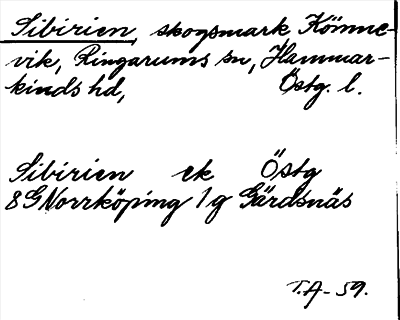 Sibirien, skogsmark Kömne-
vik, Ringarums sn, Hammar-
kinds hd, Östg. l.
Sibirien ek Östg
8G Norrköping 1g Gärdsnäs
T.A-59.